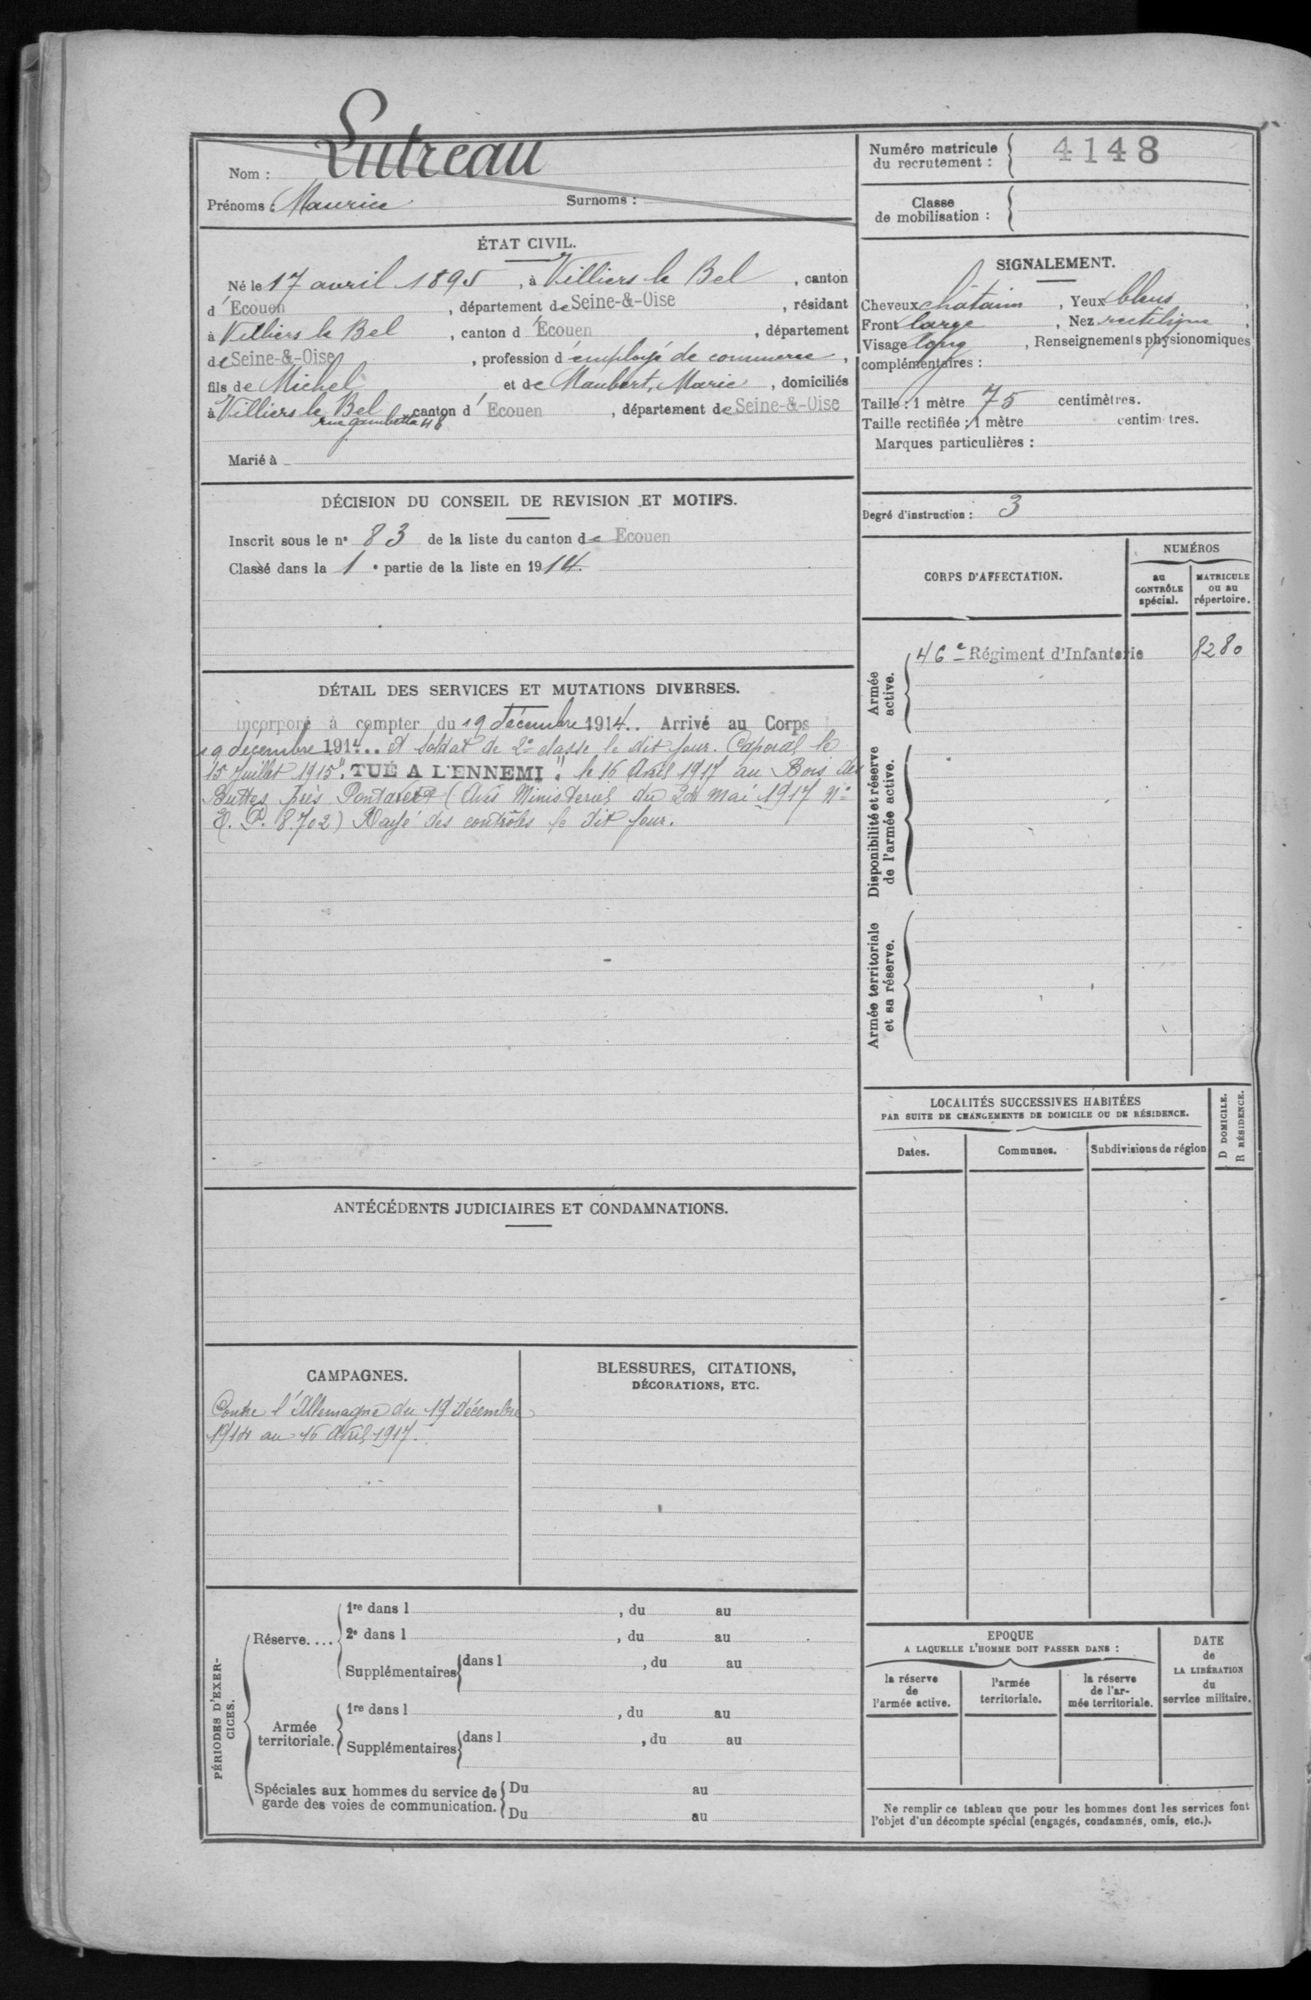 Nom : Lutreau
Prénoms : Maurice Surnoms :
Numéro matricule
du recrutement : 4148
Classe
de mobilisation :
ÉTAT CIVIL.
Né le 17 avril 1895, à Villiers le Bel, canton
d'Ecouen, département de Seine-&-Oise, résidant
à Villiers le Bel, canton d'Ecouen, département
de Seine-&-Oise, profession d'employé de commerce,
fils de Michel et de Maubert, Marie, domiciliés
à Villiers le Bel canton d'Ecouen, département de Seine-&-Oise
rue Gambetta 48
Marié à
SIGNALEMENT.
Cheveux châtains, Yeux bleus,
Front large, Nez rectiligne,
Visage long, Renseignements physionomiques
complémentaires :
Taille : 1 mètre 75 centimètres.
Taille rectifiée : 1 mètre centimètres.
Marques particulières :
Degré d'instruction : 3
DÉCISION DU CONSEIL DE REVISION ET MOTIFS.
Inscrit sous le n° 83 de la liste du canton de Ecouen
Classé dans la 1e partie de la liste en 1914.
DÉTAIL DES SERVICES ET MUTATIONS DIVERSES.
Incorporé à compter du 19 décembre 1914.. Arrivé au Corps
19 décembre 1914... et soldat de 2e classe le dit jour. Caporal le
15 juillet 1915 ". TUÉ A L'ENNEMI." le 16 Avril 1917 au Bois des
Buttes près Pontavert (Avis Ministeriel du 24 mai 1917 N°
P. 8.702) Rayé des contrôles le dit jour.
CORPS D'AFFECTATION.
NUMÉROS
au
CONTRÔLE
spécial.
MATRICULE
ou au
répertoire.
Armée
active.
46e Régiment d'Infanterie 8280
Disponibilité et réserve
de l'armée active.
Armée territoriale
et sa réserve.
LOCALITÉS SUCCESSIVES HABITÉES
PAR SUITE DE CHANGEMENTS DE DOMICILE OU DE RÉSIDENCE.
Dates. Communes. Subdivisions de région
D DOMICILE.
R RÉSIDENCE.
ANTÉCÉDENTS JUDICIAIRES ET CONDAMNATIONS.
CAMPAGNES.
Contre l'Allemagne du 19 décembre
1914 au 16 Avril 1917.
BLESSURES, CITATIONS,
DÉCORATIONS, ETC.
PÉRIODES D'EXER-
CICES.
Réserve....
1re dans l , du au
2e dans l , du au
Supplémentaires dans l , du au
Armée
territoriale.
1re dans l , du au
Supplémentaires dans l , du au
Spéciales aux hommes du service de
garde des voies de communication.
Du au
Du au
EPOQUE
A LAQUELLE L'HOMME DOIT PASSER DANS :
la réserve
de
l'armée active.
l'armée
territoriale.
la réserve
de l'ar-
mée territoriale.
DATE
de
LA LIBÉRATION
du
service militaire.
Ne remplir ce tableau que pour les hommes dont les services font
l'objet d'un décompte spécial (engagés, condamnés, omis, etc.).